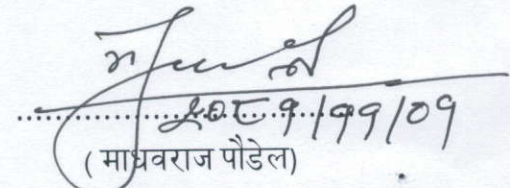 २०८१/११/०१
(माधवराज पौडेल)